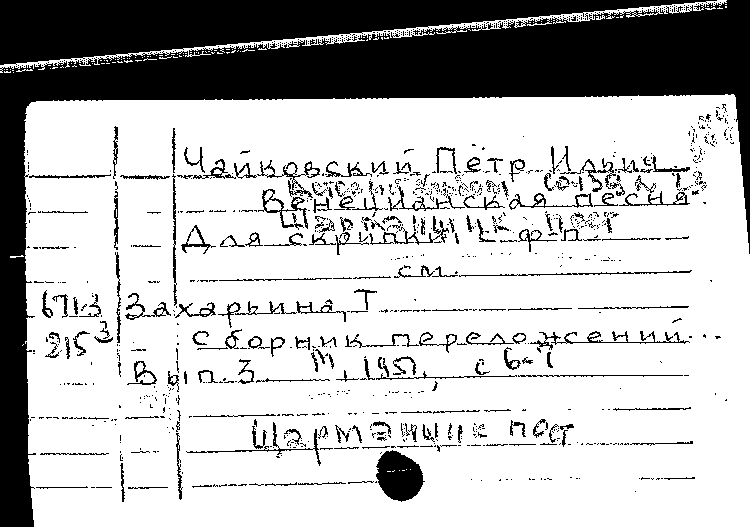 Чайковский, Пётр Ильич.
Венецианская песня.
Шарманщик поет
Для скрипки, с ф-п
см.
671-3 Захарьина, Т
215³ Сборник переложений...
Вып. 3. М, 1951, с 6-7
Шарманщик поет